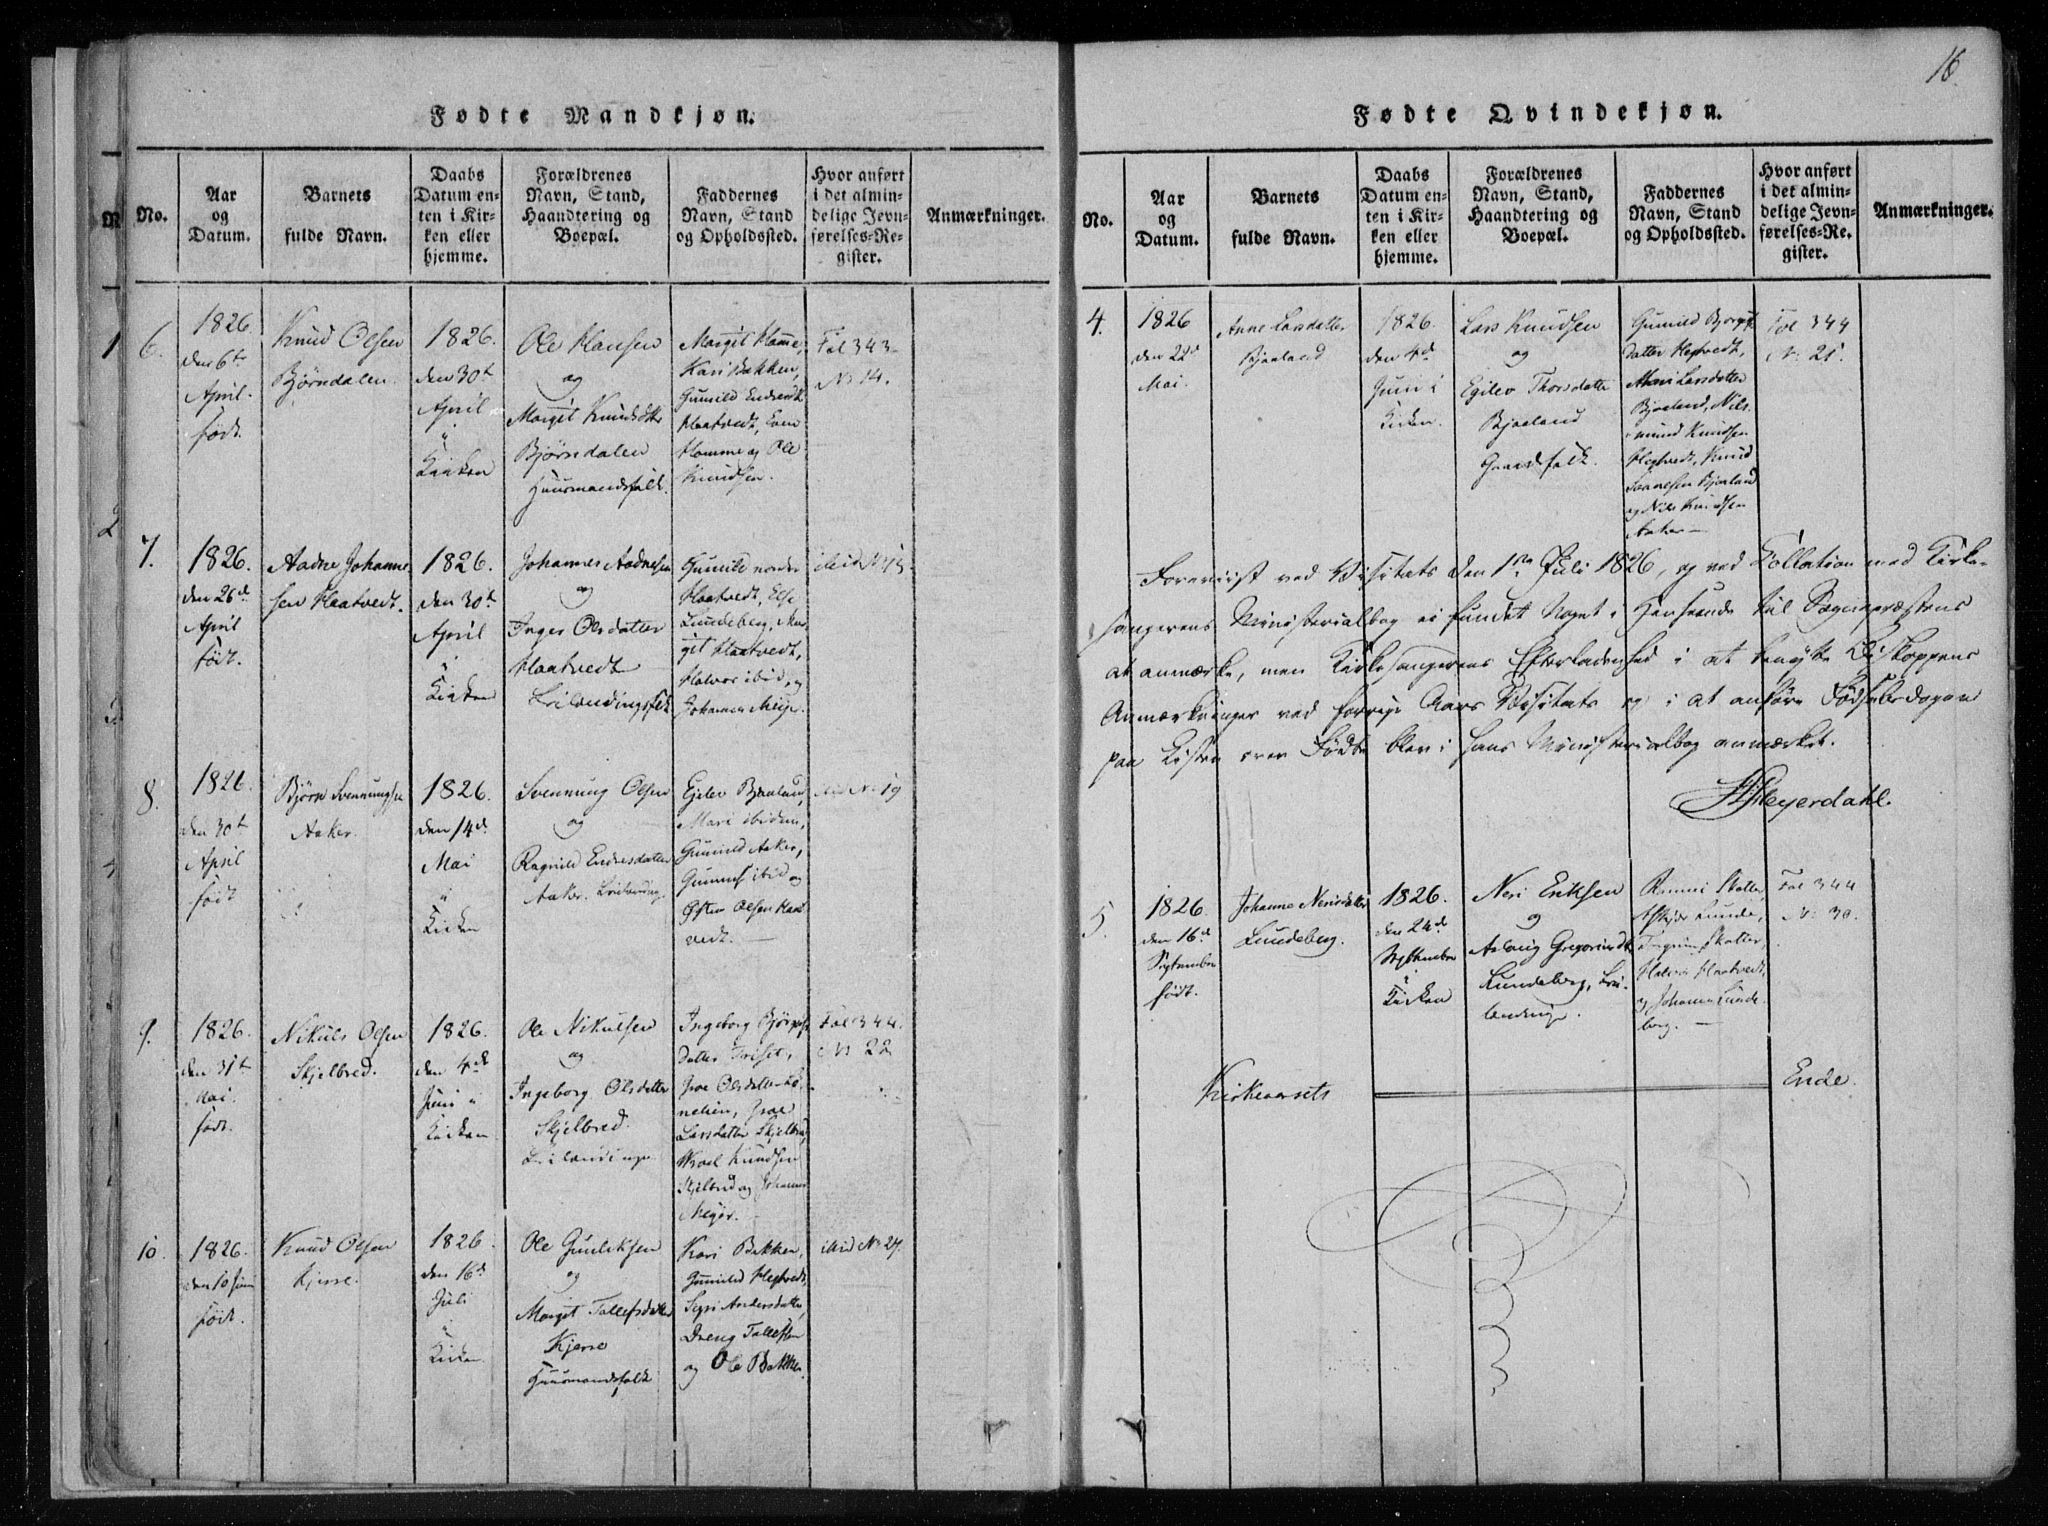 16.
Fødte Mandkjøn.
No.
Aar
og
Datum.
Barnets
fulde Navn.
Daabs
Datum en-
ten i Kir-
ken eller
hjemme.
Forældrenes
Navn, Stand,
Haandtering og
Boepæl.
Faddernes
Navn, Stand
og Opholdssted.
Hvor anført
i det almin-
delige Jevn-
førelses-Re-
gister.
Anmærkninger.
6.
1826
den 6te
April.
født.
Knud Olsen
Bjørndalen.
1826.
den 30te
April
i
Kirken
Ole Hansen
og
Margit Knudsdtr
Bjørndalen
Huusmandsfolk.
Margit Homme,
Kari Bakken,
Gunild Endresdtr
Haatvedt, Even
Homme og Ole
Knudsen.
Fol 343
No 14.
7.
1826.
den 26de
April
født.
Aadne Johanne-
sen Haatvedt.
1826.
den 30te
April
i
Kirken
Johannes Aadnesen
og
Inger Olsdatter
Haatvedt
Leilændingsfolk
Gunild nordre
Haatvedt, Else
Lundeberg, Mar-
git Haatvedt,
Halvor ibid, og
Johannes Meyer.
ibid No 15
8.
1826.
den 30te
April
født
Bjørn Svenningsen
Aaker.
1826.
den 14de
Mai
i
Kirken
Svenning Olsen
og
Ragnild Endresdatter
Aaker. Leilænding
Egelev Bjaaland,
Mari ibidem,
Gunild Aaker,
Gunnuf ibid og
Østen Olsen Haat-
vedt.
ibid No 19
9.
1826.
den 31te
Mai.
født.
Nikuls Olsen
Skjelbred.
1826.
den 4de
Juni i
Kirken
Ole Nikulsen
og
Ingeborg Olsdatter
Skjelbred.
Leilændinge
Ingeborg Bjørgufs-
datter Triset,
Groe Olsdatter Lø-
nelien, Groe
Larsdatter Skjelbred,
Wrael Knudsen
Skjelbred og Johannes
Meyer.
Fol 344.
No 22
10.
1826.
den 10 Juni
født.
Knud Olsen
Kjerre.
1826.
den 16de
Juli
i
Kirken
Ole Gunleksen
og
Margit Tollefsdatter
Kjerre
Huusmandsfolk
Kari Bakken,
Gunild Hegtvedt,
Sigri Andersdatter,
Dreng Tollefsen
og Ole Bakken.
ibid No 27.
Fødte Qvindekjøn.
No.
Aar
og
Datum.
Barnets
fulde Navn.
Daabs
Datum en-
ten i Kir-
ken eller
hjemme.
Forældrenes
Navn, Stand,
Haandtering og
Boepæl.
Faddernes
Navn, Stand
og Opholdssted.
Hvor anført
i det almin-
delige Jevn-
førelses-Re-
gister.
Anmærkninger.
4.
1826
den 22de
Mai.
Anne Larsdatter
Bjaaland
1826.
den 4de
Juni i
Kirken.
Lars Knudsen
og
Egelev Thorsdatter
Bjaaland
Gaardfolk.
Gunild Bjorgufs-
datter Hegtvedt,
Mari Larsdatter
Bjaaland, Nils
Knudsen
Hegtvedt, Knud
Bjaaland
og Nils Knudsen
Aaker
Fol 344
No 21.
Foreviist ved Visitats den 1ste Juli 1826, og ved Collation med Kirke-
sangerens Ministerialbog ei fundet Noget i Henseende til Sognepræstens
at anmærke, men Kirkesangerens Efterladenhed i at benytte Biskoppens
Anmærkninger ved forrige Aars Visitats og i at anføre Fødselsdagen
paa Listen over Fødte blev i hans Ministerialbog anmærket.
Heyerdahl.
5.
1826.
den 16de
September
født.
Johanne Nerisdatter
Lundeberg.
1826.
den 24de
September
i
Kirken
Neri Eriksen
og
Aslaug Gregoriusdtr
Lundeberg, Lei-
lændinge.
Rønnei Skotter,
Lunde,
Jorgine Skotter,
Halvor Haatvedt,
og Johannes Lunde-
berg.
Fol 344
No 30.
Kirkeaarets
Ende.